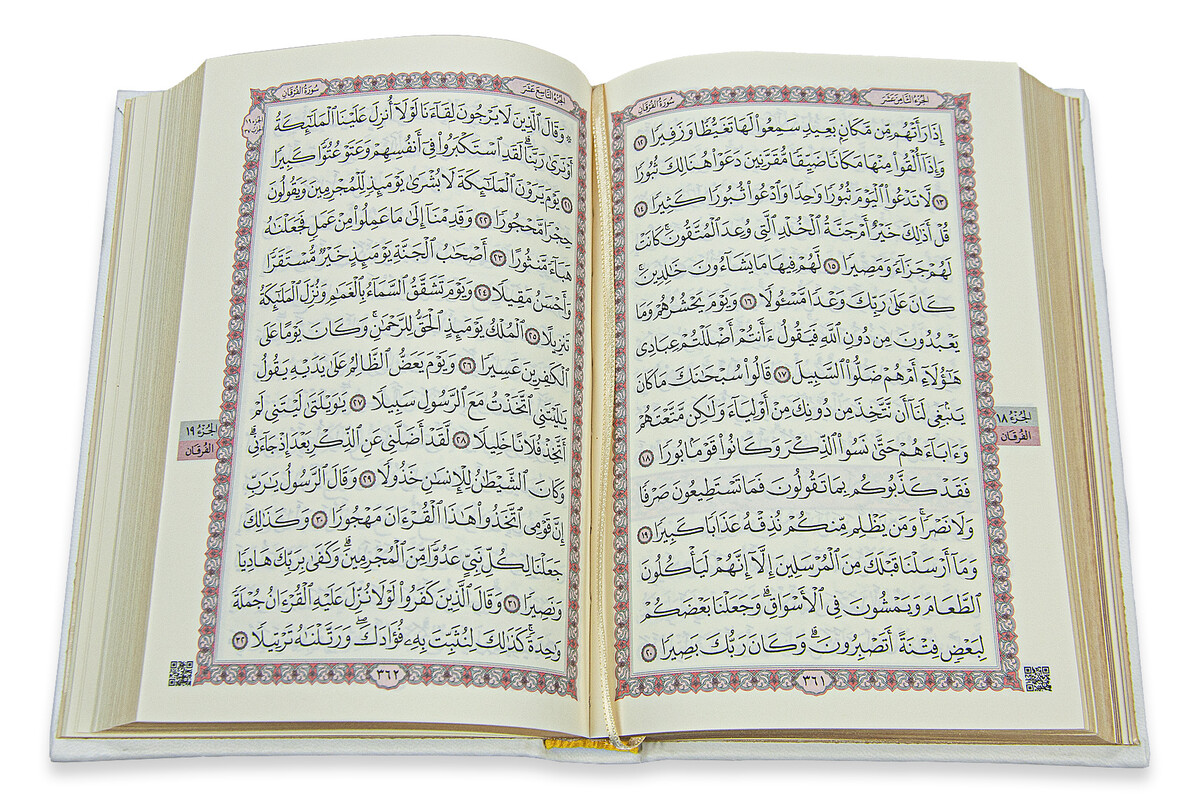 الجُزْءُ الثَّامِنَ عَشَرَ
سُورَةُ الْفُرْقَانِ
إِذَا رَأَتْهُم مِّن مَّكَانٍ بَعِيدٍ سَمِعُوا۟ لَهَا تَغَيُّظًا وَزَفِيرًا ١٢
وَإِذَآ أُلْقُوا۟ مِنْهَا مَكَانًا ضَيِّقًا مُّقَرَّنِينَ دَعَوْا۟ هُنَالِكَ ثُبُورًا
١٣ لَّا تَدْعُوا۟ ٱلْيَوْمَ ثُبُورًا وَٰحِدًا وَٱدْعُوا۟ ثُبُورًا كَثِيرًا ١٤
قُلْ أَذَٰلِكَ خَيْرٌ أَمْ جَنَّةُ ٱلْخُلْدِ ٱلَّتِى وُعِدَ ٱلْمُتَّقُونَ ۚ كَانَتْ
لَهُمْ جَزَآءً وَمَصِيرًا ١٥ لَّهُمْ فِيهَا مَا يَشَآءُونَ خَٰلِدِينَ ۚ
كَانَ عَلَىٰ رَبِّكَ وَعْدًا مَّسْـُٔولًا ١٦ وَيَوْمَ يَحْشُرُهُمْ وَمَا
يَعْبُدُونَ مِن دُونِ ٱللَّهِ فَيَقُولُ ءَأَنتُمْ أَضْلَلْتُمْ عِبَادِى
هَٰٓؤُلَآءِ أَمْ هُمْ ضَلُّوا۟ ٱلسَّبِيلَ ١٧ قَالُوا۟ سُبْحَٰنَكَ مَا كَانَ
يَنۢبَغِى لَنَآ أَن نَّتَّخِذَ مِن دُونِكَ مِنْ أَوْلِيَآءَ وَلَٰكِن مَّتَّعْتَهُمْ
وَءَابَآءَهُمْ حَتَّىٰ نَسُوا۟ ٱلذِّكْرَ وَكَانُوا۟ قَوْمًۢا بُورًا ١٨
فَقَدْ كَذَّبُوكُم بِمَا تَقُولُونَ فَمَا تَسْتَطِيعُونَ صَرْفًا
وَلَا نَصْرًا ۚ وَمَن يَظْلِم مِّنكُمْ نُذِقْهُ عَذَابًا كَبِيرًا ١٩
وَمَآ أَرْسَلْنَا قَبْلَكَ مِنَ ٱلْمُرْسَلِينَ إِلَّآ إِنَّهُمْ لَيَأْكُلُونَ
ٱلطَّعَامَ وَيَمْشُونَ فِى ٱلْأَسْوَاقِ ۗ وَجَعَلْنَا بَعْضَكُمْ
لِبَعْضٍ فِتْنَةً أَتَصْبِرُونَ ۗ وَكَانَ رَبُّكَ بَصِيرًا ٢٠
٣٦١
الجُزْءُ ١٨
الفُرْقَان
الجُزْءُ التَّاسِعَ عَشَرَ
سُورَةُ الْفُرْقَانِ
الحزب ٣٧
۞ وَقَالَ ٱلَّذِينَ لَا يَرْجُونَ لِقَآءَنَا لَوْلَآ أُنزِلَ عَلَيْنَا ٱلْمَلَٰٓئِكَةُ
أَوْ نَرَىٰ رَبَّنَا ۗ لَقَدِ ٱسْتَكْبَرُوا۟ فِىٓ أَنفُسِهِمْ وَعَتَوْ عُتُوًّا كَبِيرًا
٢١ يَوْمَ يَرَوْنَ ٱلْمَلَٰٓئِكَةَ لَا بُشْرَىٰ يَوْمَئِذٍ لِّلْمُجْرِمِينَ وَيَقُولُونَ
حِجْرًا مَّحْجُورًا ٢٢ وَقَدِمْنَآ إِلَىٰ مَا عَمِلُوا۟ مِنْ عَمَلٍ فَجَعَلْنَٰهُ
هَبَآءً مَّنثُورًا ٢٣ أَصْحَٰبُ ٱلْجَنَّةِ يَوْمَئِذٍ خَيْرٌ مُّسْتَقَرًّا
وَأَحْسَنُ مَقِيلًا ٢٤ وَيَوْمَ تَشَقَّقُ ٱلسَّمَآءُ بِٱلْغَمَٰمِ وَنُزِّلَ ٱلْمَلَٰٓئِكَةُ
تَنزِيلًا ٢٥ ٱلْمُلْكُ يَوْمَئِذٍ ٱلْحَقُّ لِلرَّحْمَٰنِ ۚ وَكَانَ يَوْمًا عَلَى
ٱلْكَٰفِرِينَ عَسِيرًا ٢٦ وَيَوْمَ يَعَضُّ ٱلظَّالِمُ عَلَىٰ يَدَيْهِ يَقُولُ
يَٰلَيْتَنِى ٱتَّخَذْتُ مَعَ ٱلرَّسُولِ سَبِيلًا ٢٧ يَٰوَيْلَتَىٰ لَيْتَنِى لَمْ
أَتَّخِذْ فُلَانًا خَلِيلًا ٢٨ لَّقَدْ أَضَلَّنِى عَنِ ٱلذِّكْرِ بَعْدَ إِذْ جَآءَنِى ۗ
وَكَانَ ٱلشَّيْطَٰنُ لِلْإِنسَٰنِ خَذُولًا ٢٩ وَقَالَ ٱلرَّسُولُ يَٰرَبِّ
إِنَّ قَوْمِى ٱتَّخَذُوا۟ هَٰذَا ٱلْقُرْءَانَ مَهْجُورًا ٣٠ وَكَذَٰلِكَ
جَعَلْنَا لِكُلِّ نَبِىٍّ عَدُوًّا مِّنَ ٱلْمُجْرِمِينَ ۗ وَكَفَىٰ بِرَبِّكَ هَادِيًا
وَنَصِيرًا ٣١ وَقَالَ ٱلَّذِينَ كَفَرُوا۟ لَوْلَا نُزِّلَ عَلَيْهِ ٱلْقُرْءَانُ جُمْلَةً
وَٰحِدَةً ۚ كَذَٰلِكَ لِنُثَبِّتَ بِهِۦ فُؤَادَكَ ۖ وَرَتَّلْنَٰهُ تَرْتِيلًا ٣٢
٣٦٢
الجُزْءُ ١٩
الفُرْقَان